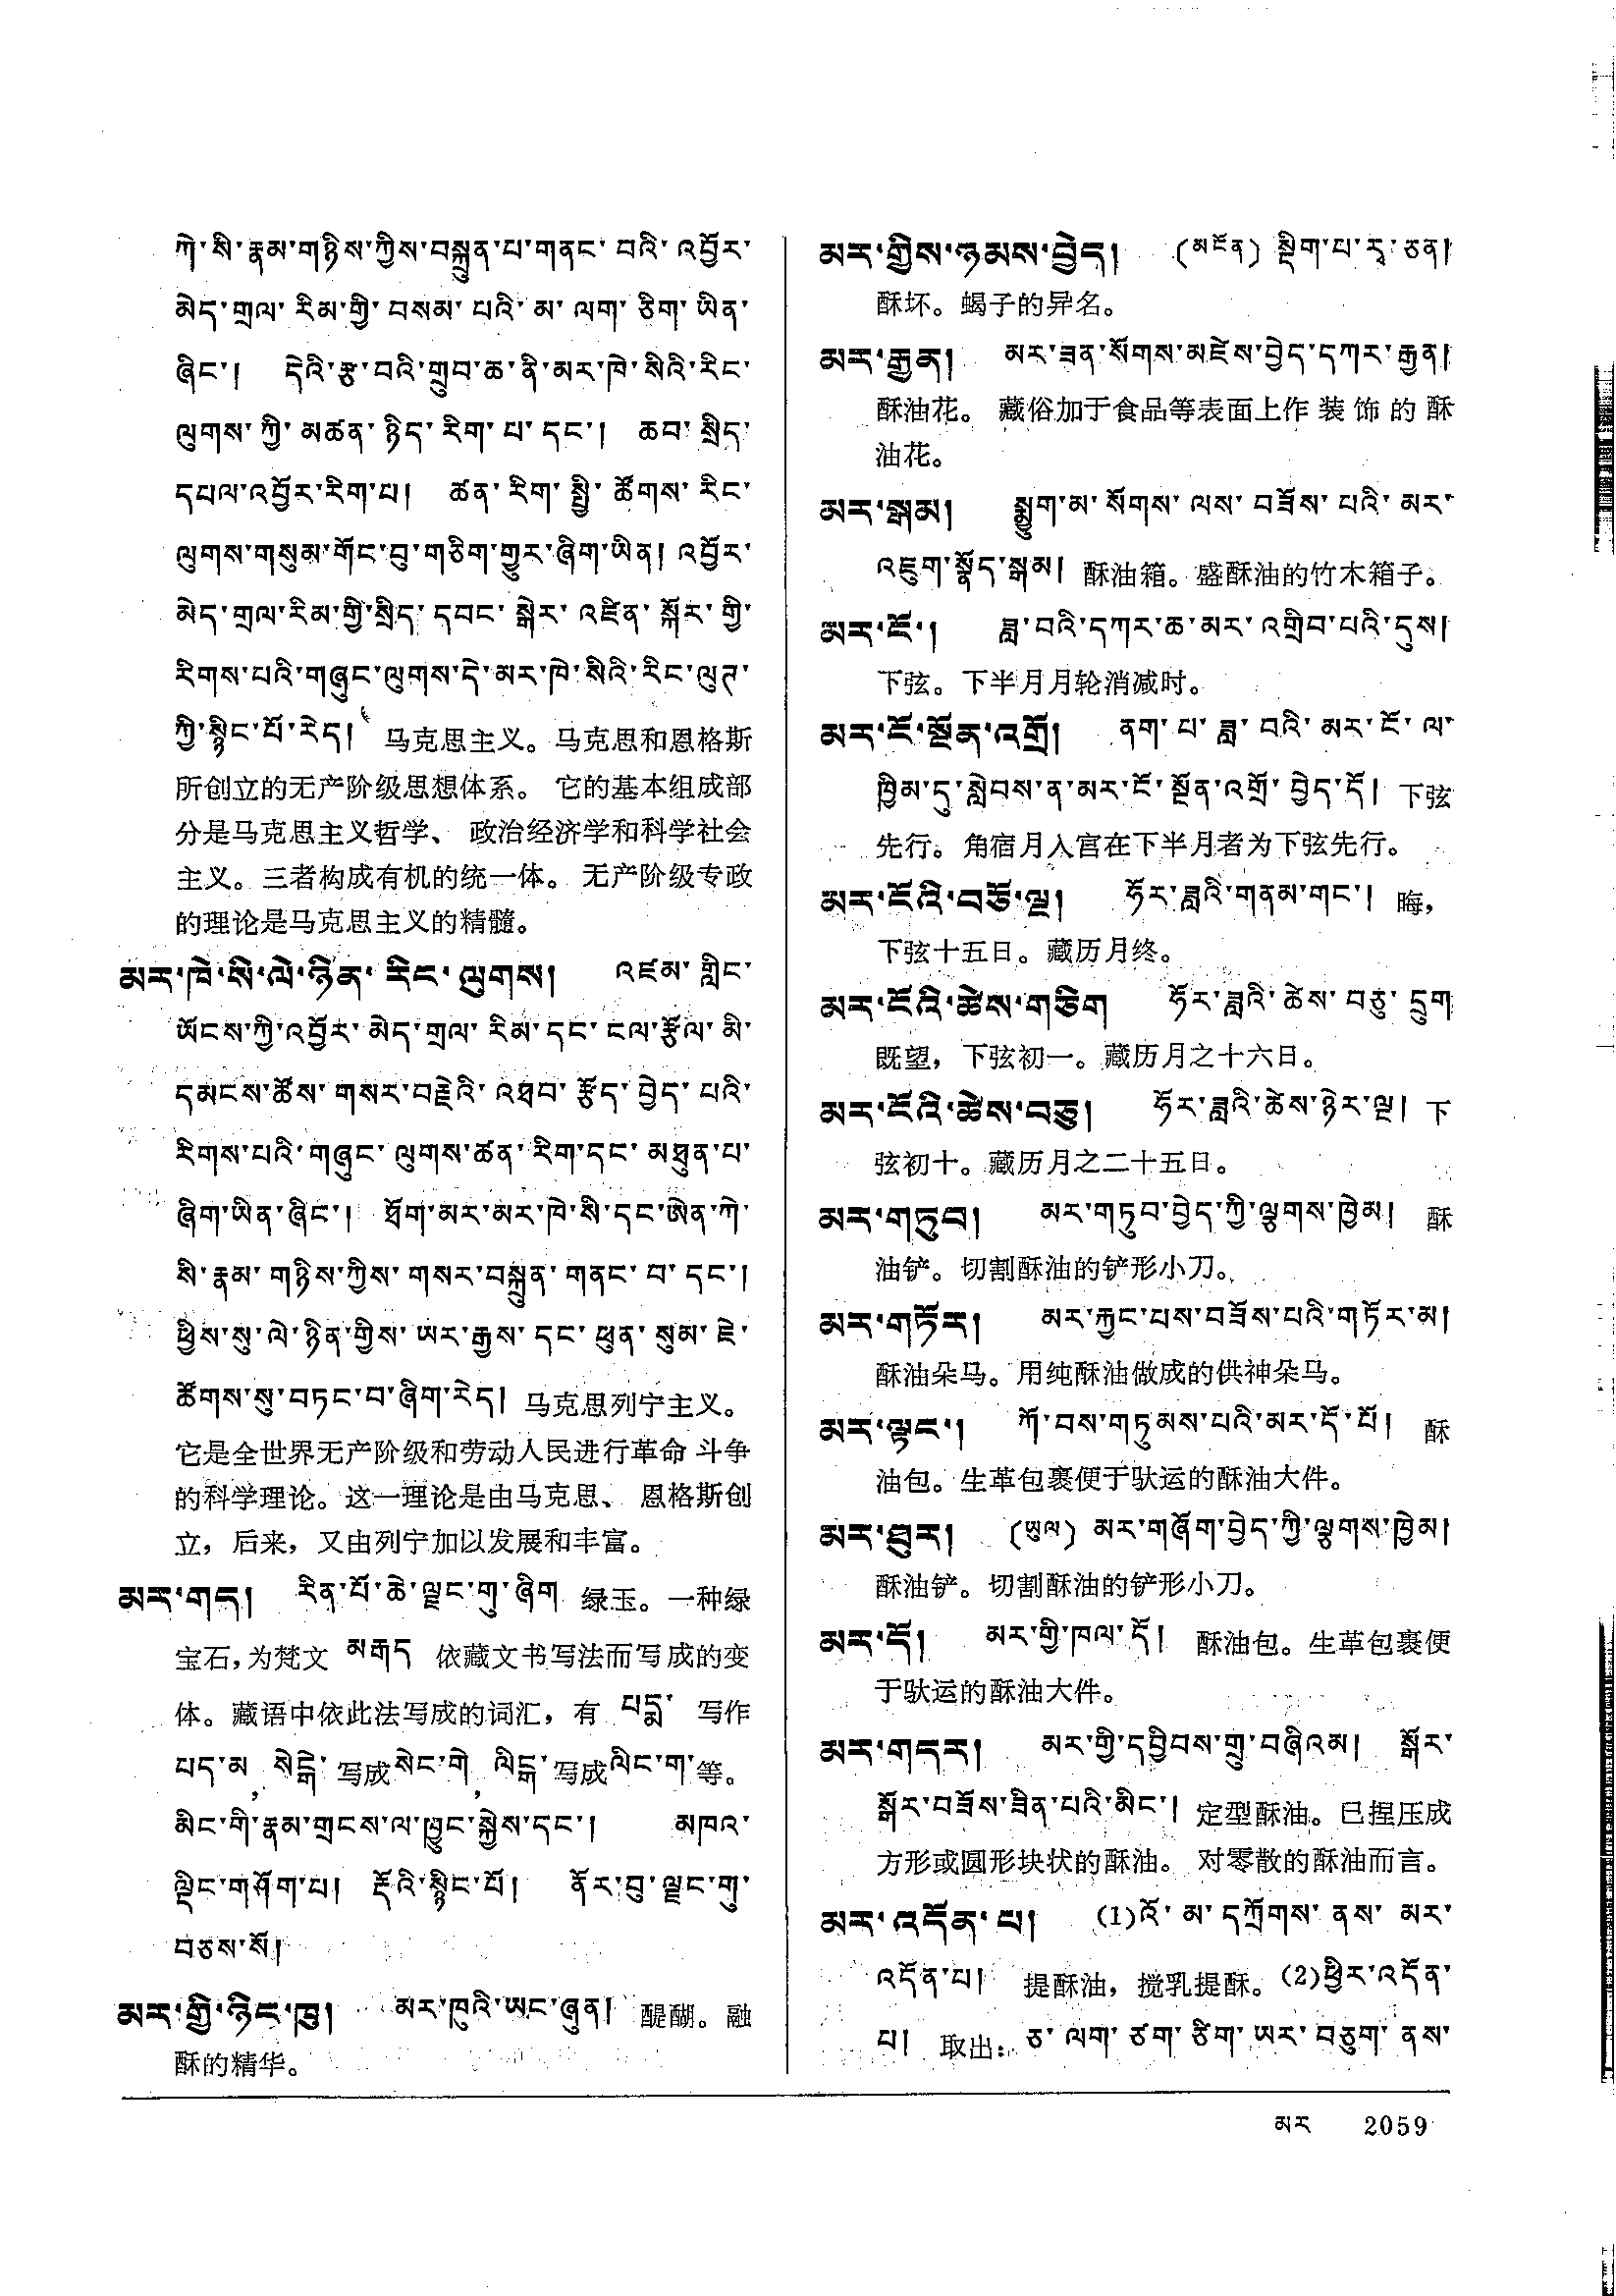 ཀེ་སི་རྣམ་གཉིས་ཀྱིས་བསྐྲུན་པ་གནང་བའི་འབྱོར་
མེད་གྲལ་རིམ་གྱི་བསམ་པའི་མ་ལག་ཅིག་ཡིན་
ཞིང་། དེའི་རྩ་བའི་གྲུབ་ཆ་ནི་མར་ཁེ་སིའི་རིང་
ལུགས་ཀྱི་མཚན་ཉིད་རིག་པ་དང་། ཆབ་སྲིད་
དཔལ་འབྱོར་རིག་པ། ཚན་རིག་སྤྱི་ཚོགས་རིང་
ལུགས་གསུམ་གོང་བུ་གཅིག་གྱུར་ཞིག་ཡིན། འབྱོར་
མེད་གྲལ་རིམ་གྱི་སྲིད་དབང་སྒེར་འཛིན་སྐོར་གྱི་
རིགས་པའི་གཞུང་ལུགས་དེ་མར་ཁེ་སིའི་རིང་ལུཊ་
ཀྱི་སྙིང་པོ་རེད། 马克思主义。马克思和恩格斯
所创立的无产阶级思想体系。 它的基本组成部
分是马克思主义哲学、 政治经济学和科学社会
主义。三者构成有机的统一体。 无产阶级专政
的理论是马克思主义的精髓。
མར་ཁེ་སི་ལེ་ཉིན་རིང་ལུགས། འཛམ་གླིང་
ཡོངས་ཀྱི་འབྱོར་མེད་གྲལ་རིམ་དང་ངལ་རྩོལ་མི་
དམངས་ཚོས་གསར་བརྗེའི་འཐབ་རྩོད་བྱེད་པའི་
རིགས་པའི་གཞུང་ལུགས་ཚན་རིག་དང་མཐུན་པ་
ཞིག་ཡིན་ཞིང་། ཐོག་མར་མར་ཁེ་སི་དང་ཨེན་ཀེ་
སི་རྣམ་གཉིས་ཀྱིས་གསར་བསྐྲུན་གནང་བ་དང་།
ཕྱིས་སུ་ལེ་ཉིན་གྱིས་ཡར་རྒྱས་དང་ཕུན་སུམ་ཇེ་
ཚོགས་སུ་བཏང་བ་ཞིག་རེད། 马克思列宁主义。
它是全世界无产阶级和劳动人民进行革命 斗争
的科学理论。这一理论是由马克思、 恩格斯创
立，后来，又由列宁加以发展和丰富。
མར་གད། རིན་པོ་ཆེ་ལྗང་གུ་ཞིག 绿玉。一种绿
宝石，为梵文 མརྒད 依藏文书写法而写成的变
体。藏语中依此法写成的词汇，有 པདྨ་ 写作
པད་མ，སེངྒེ་写成སེང་གེ，ལིངྒ་写成ལིང་ག་等。
མིང་གི་རྣམ་གྲངས་ལ་ཁྱུང་སྐྱེས་དང་། མཁའ་
ལྡིང་གཤོག་པ། རྡོའི་སྙིང་པོ། ནོར་བུ་ལྗང་གུ་
བཅས་སོ།
མར་གྱི་ཉིང་ཁུ། མར་ཁུའི་ཡང་ཞུན། 醍醐。融
酥的精华。
མར་གྱིས་ཉམས་བྱེད། (མངོན) སྡིག་པ་རྭ་ཅན།
酥坏。蝎子的异名。
མར་རྒྱན། མར་ཟན་སོགས་མཛེས་བྱེད་དཀར་རྒྱན།
酥油花。 藏俗加于食品等表面上作 装 饰 的 酥
油花。
མར་སྒམ། སྨྱུག་མ་སོགས་ལས་བཟོས་པའི་མར་
འཇུག་སྣོད་སྒམ། 酥油箱。盛酥油的竹木箱子。
མར་ངོ་། ཟླ་བའི་དཀར་ཆ་མར་འགྲིབ་པའི་དུས།
下弦。下半月月轮消减时。
མར་ངོ་སྔོན་འགྲོ། ནག་པ་ཟླ་བའི་མར་ངོ་ལ་
ཁྱིམ་དུ་སླེབས་ན་མར་ངོ་སྔོན་འགྲོ་བྱེད་དོ། 下弦
先行。角宿月入宫在下半月者为下弦先行。
མར་ངོའི་བཅོ་ལྔ། ཧོར་ཟླའི་གནམ་གང་། 晦，
下弦十五日。藏历月终。
མར་ངོའི་ཚེས་གཅིག ཧོར་ཟླའི་ཚེས་བཅུ་དྲུག
既望，下弦初一。藏历月之十六日。
མར་ངོའི་ཚེས་བཅུ། ཧོར་ཟླའི་ཚེས་ཉེར་ལྔ། 下
弦初十。藏历月之二十五日。
མར་གཏུབ། མར་གཏུབ་བྱེད་ཀྱི་ལྕགས་ཁྱེམ། 酥
油铲。切割酥油的铲形小刀。
མར་གཏོར། མར་རྐྱང་པས་བཟོས་པའི་གཏོར་མ།
酥油朵马。用纯酥油做成的供神朵马。
མར་ལྟང་། ཀོ་བས་གཏུམས་པའི་མར་དོ་པོ། 酥
油包。生革包裹便于驮运的酥油大件。
མར་ཐུར། (ཡུལ) མར་གཞོག་བྱེད་ཀྱི་ལྕགས་ཁྱེམ།
酥油铲。切割酥油的铲形小刀。
མར་དོ། མར་གྱི་ཁལ་དོ། 酥油包。生革包裹便
于驮运的酥油大件。
མར་གདར། མར་གྱི་དབྱིབས་གྲུ་བཞིའམ། སྒོར་
སྒོར་བཟོས་ཟིན་པའི་མིང་། 定型酥油。已捏压成
方形或圆形块状的酥油。 对零散的酥油而言。
མར་འདོན་པ། (1)འོ་མ་དཀྲོགས་ནས་མར་
འདོན་པ། 提酥油，搅乳提酥。(2)ཕྱིར་འདོན་
པ། 取出：ཅ་ལག་ཙག་ཙིག་ཡར་བཅུག་ནས་
མར 2059